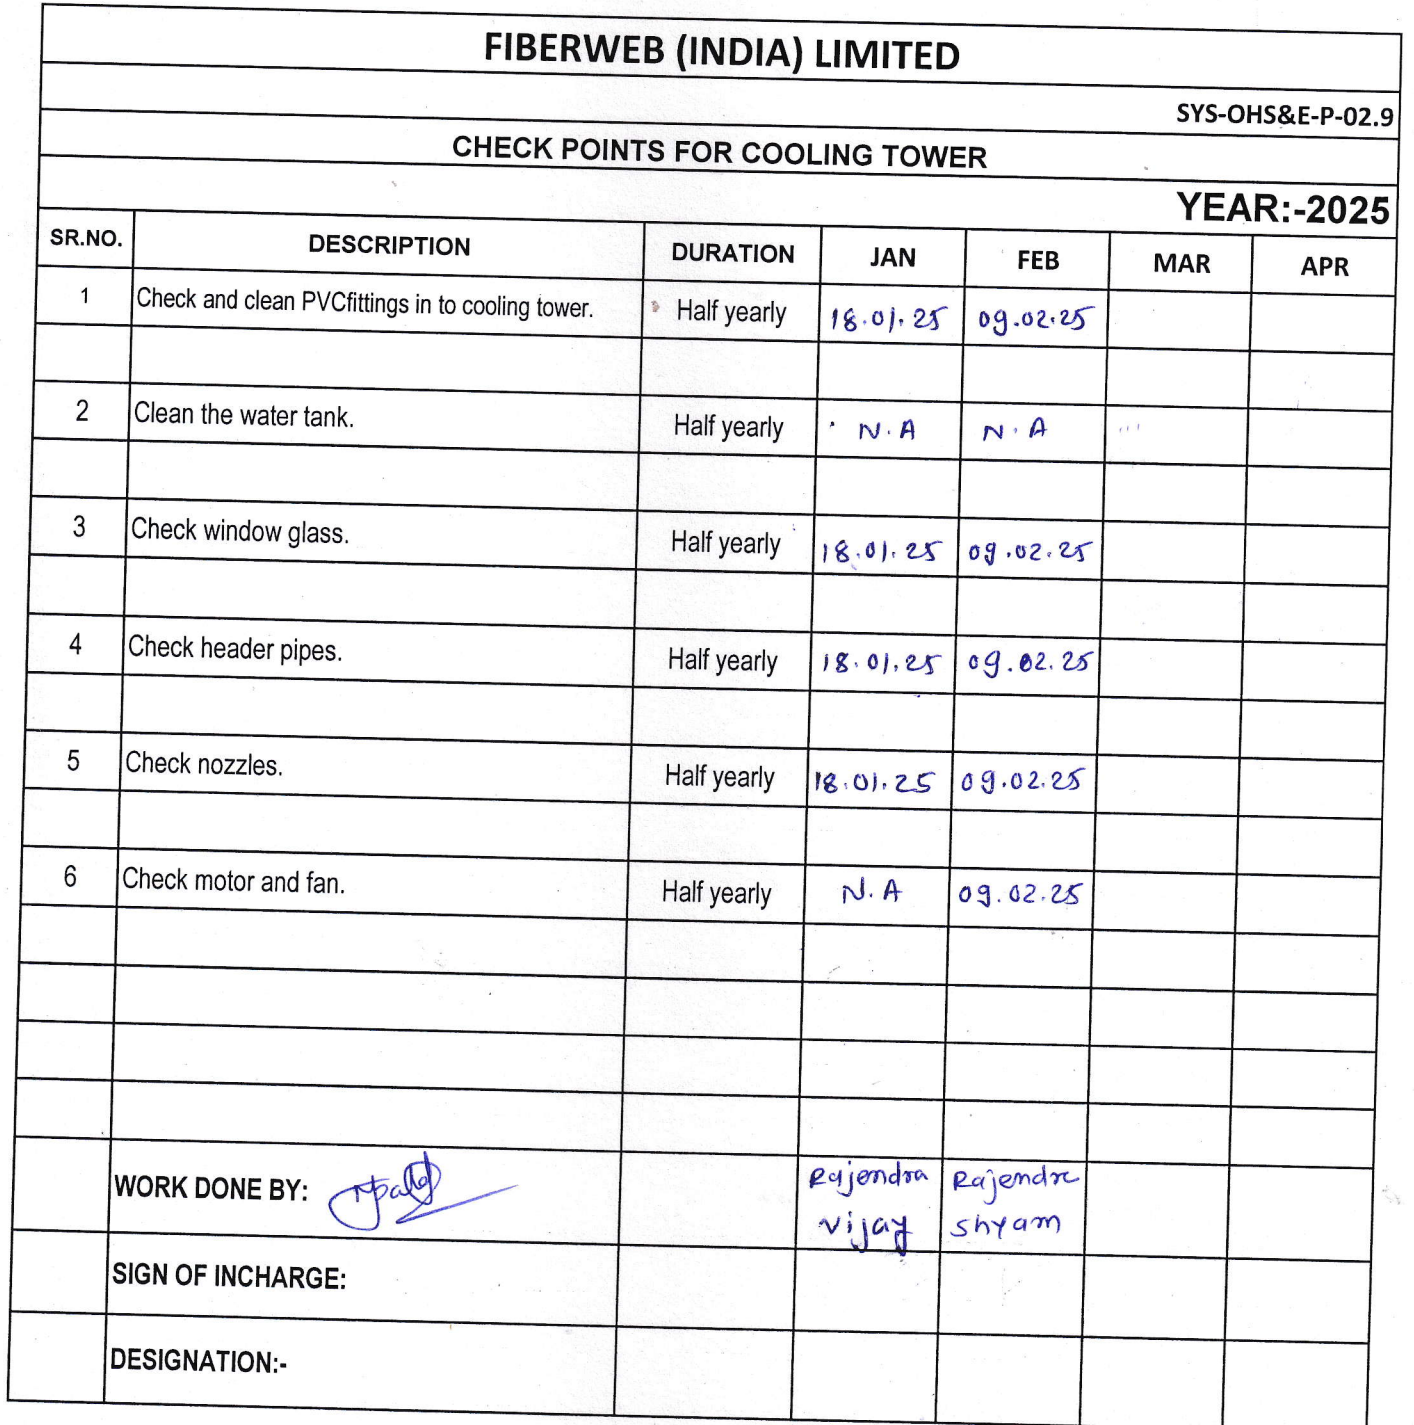 FIBERWEB (INDIA) LIMITED
SYS-OHS&E-P-02.9
CHECK POINTS FOR COOLING TOWER
YEAR:-2025
SR.NO. DESCRIPTION DURATION JAN FEB MAR APR
1 Check and clean PVCfittings in to cooling tower. Half yearly 18.01.25 09.02.25
2 Clean the water tank. Half yearly N.A N.A
3 Check window glass. Half yearly 18.01.25 09.02.25
4 Check header pipes. Half yearly 18.01.25 09.02.25
5 Check nozzles. Half yearly 18.01.25 09.02.25
6 Check motor and fan. Half yearly N.A 09.02.25
WORK DONE BY: Rajendra Rajendra
vijay shyam
SIGN OF INCHARGE:
DESIGNATION:-